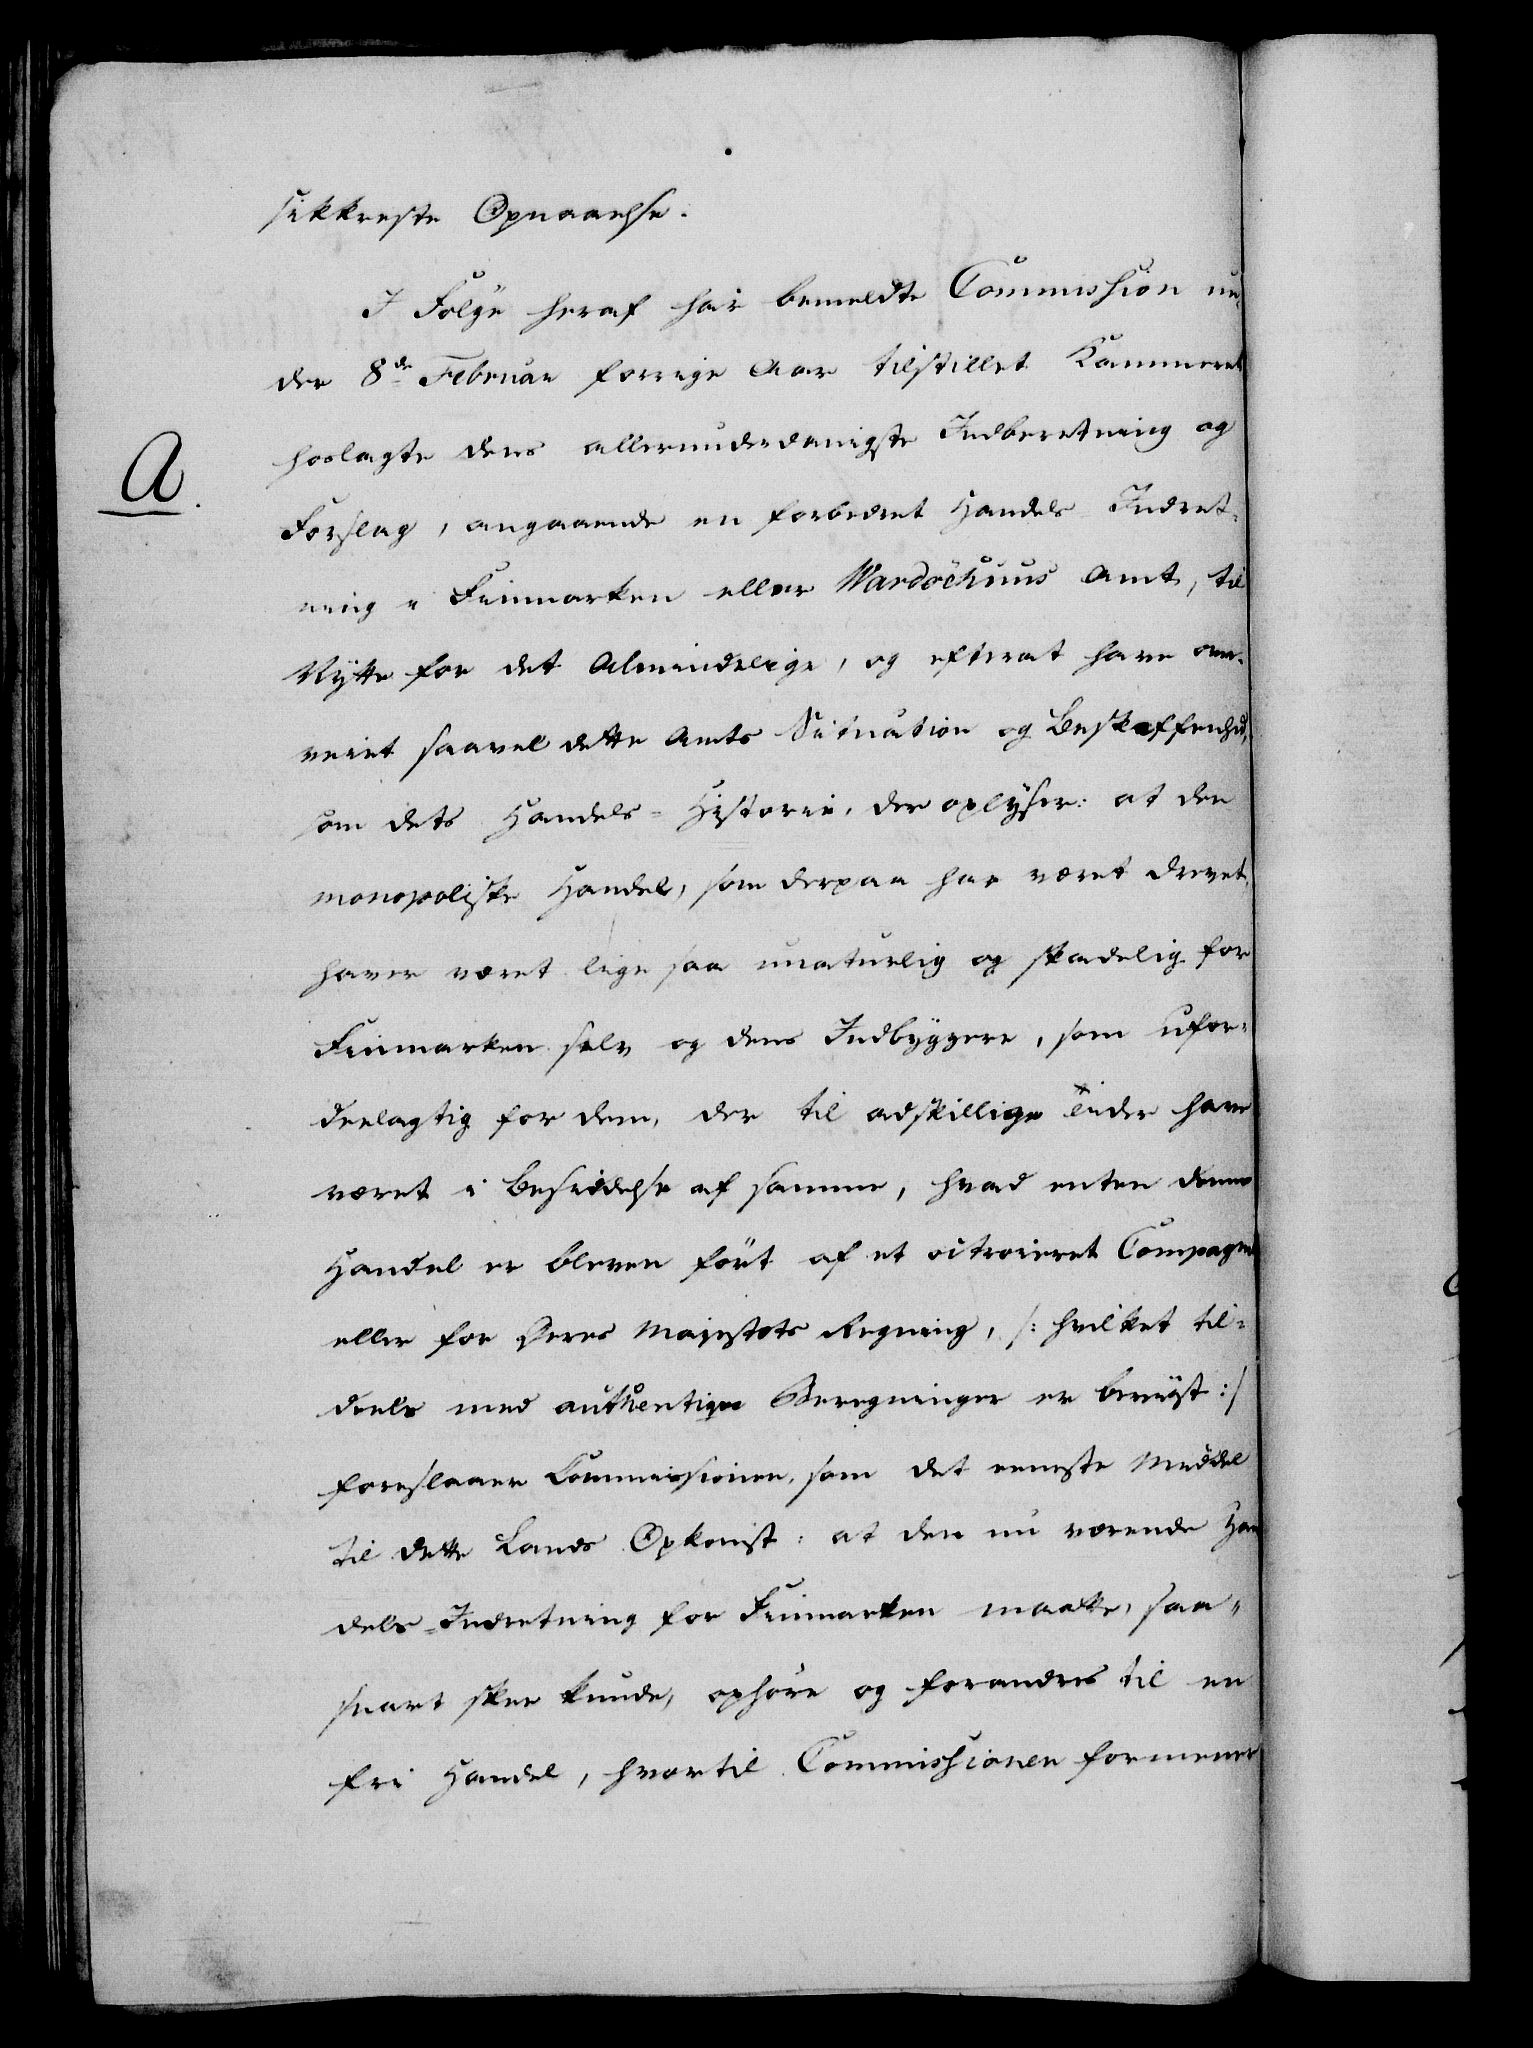 sikkreste Opnaaelse.
I Følge heraf har bemeldte Commission un-
der 8de Februar forrige Aar tilstillet Kammeret
hoslagte dens allerunderdanigste Indberetning og
A.
Forslag, angaaende en forbedret Handels Indret-
ning i Finmarken eller Wardöehuus Amt, til
Nytte for det Almindelige, og efterat have over-
veiet saavel dette Amts Situation og Beskaffenhed,
som dets Handels-Historie, der oplÿser: at den
monopoliske Handel, som derpaa har været drevet,
haver været lige saa unaturlig og skadelig for
Finmarken selv og dens Indbyggere, som ufor-
deelagtig for dem, der til adskillige Tider have
været i Besiddelse af samme, hvad enten denne
Handel er bleven fört af et octroieret Compagnie
eller for Deres Majestæts Regning, /: hvilket til-
deels med authentique Beregninger er beviist :/
foreslaaer Commissionen, som det eeneste Middel
til dette Lands Opkomst: at den nu værende Han
dels-Indretning for Finmarken maatte, saa-
snart skee kunde, ophöre og forandres til en
fri Handel, hvortil Commissionen formener